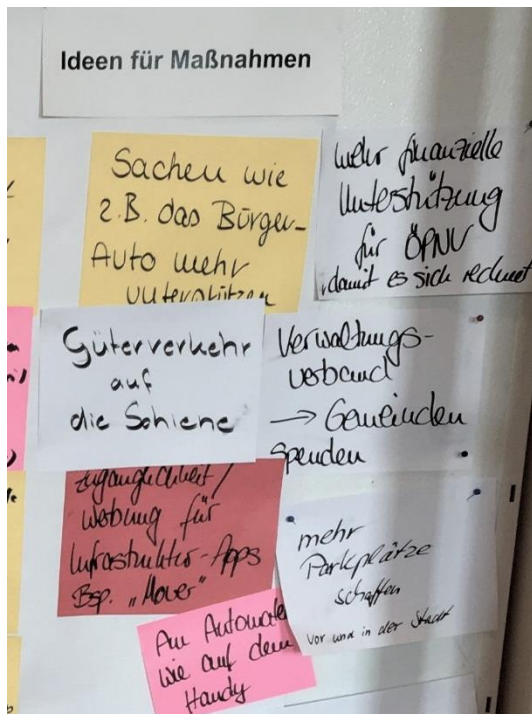 Ideen für Maßnahmen
Sachen wie
z.B. das Bürger-
Auto mehr
unterstützen
mehr finanzielle
Unterstützung
für ÖPNV
damit es sich rechnet
Güterverkehr
auf
die Schiene
Verwaltungs-
verband
→ Gemeinden
Spenden
Zugänglichkeit/
Werbung für
Infrastruktur-Apps
Bsp. „Mover"
mehr
Parkplätze
schaffen
vor und in der Stadt
Am Automaten
wie auf dem
Handy